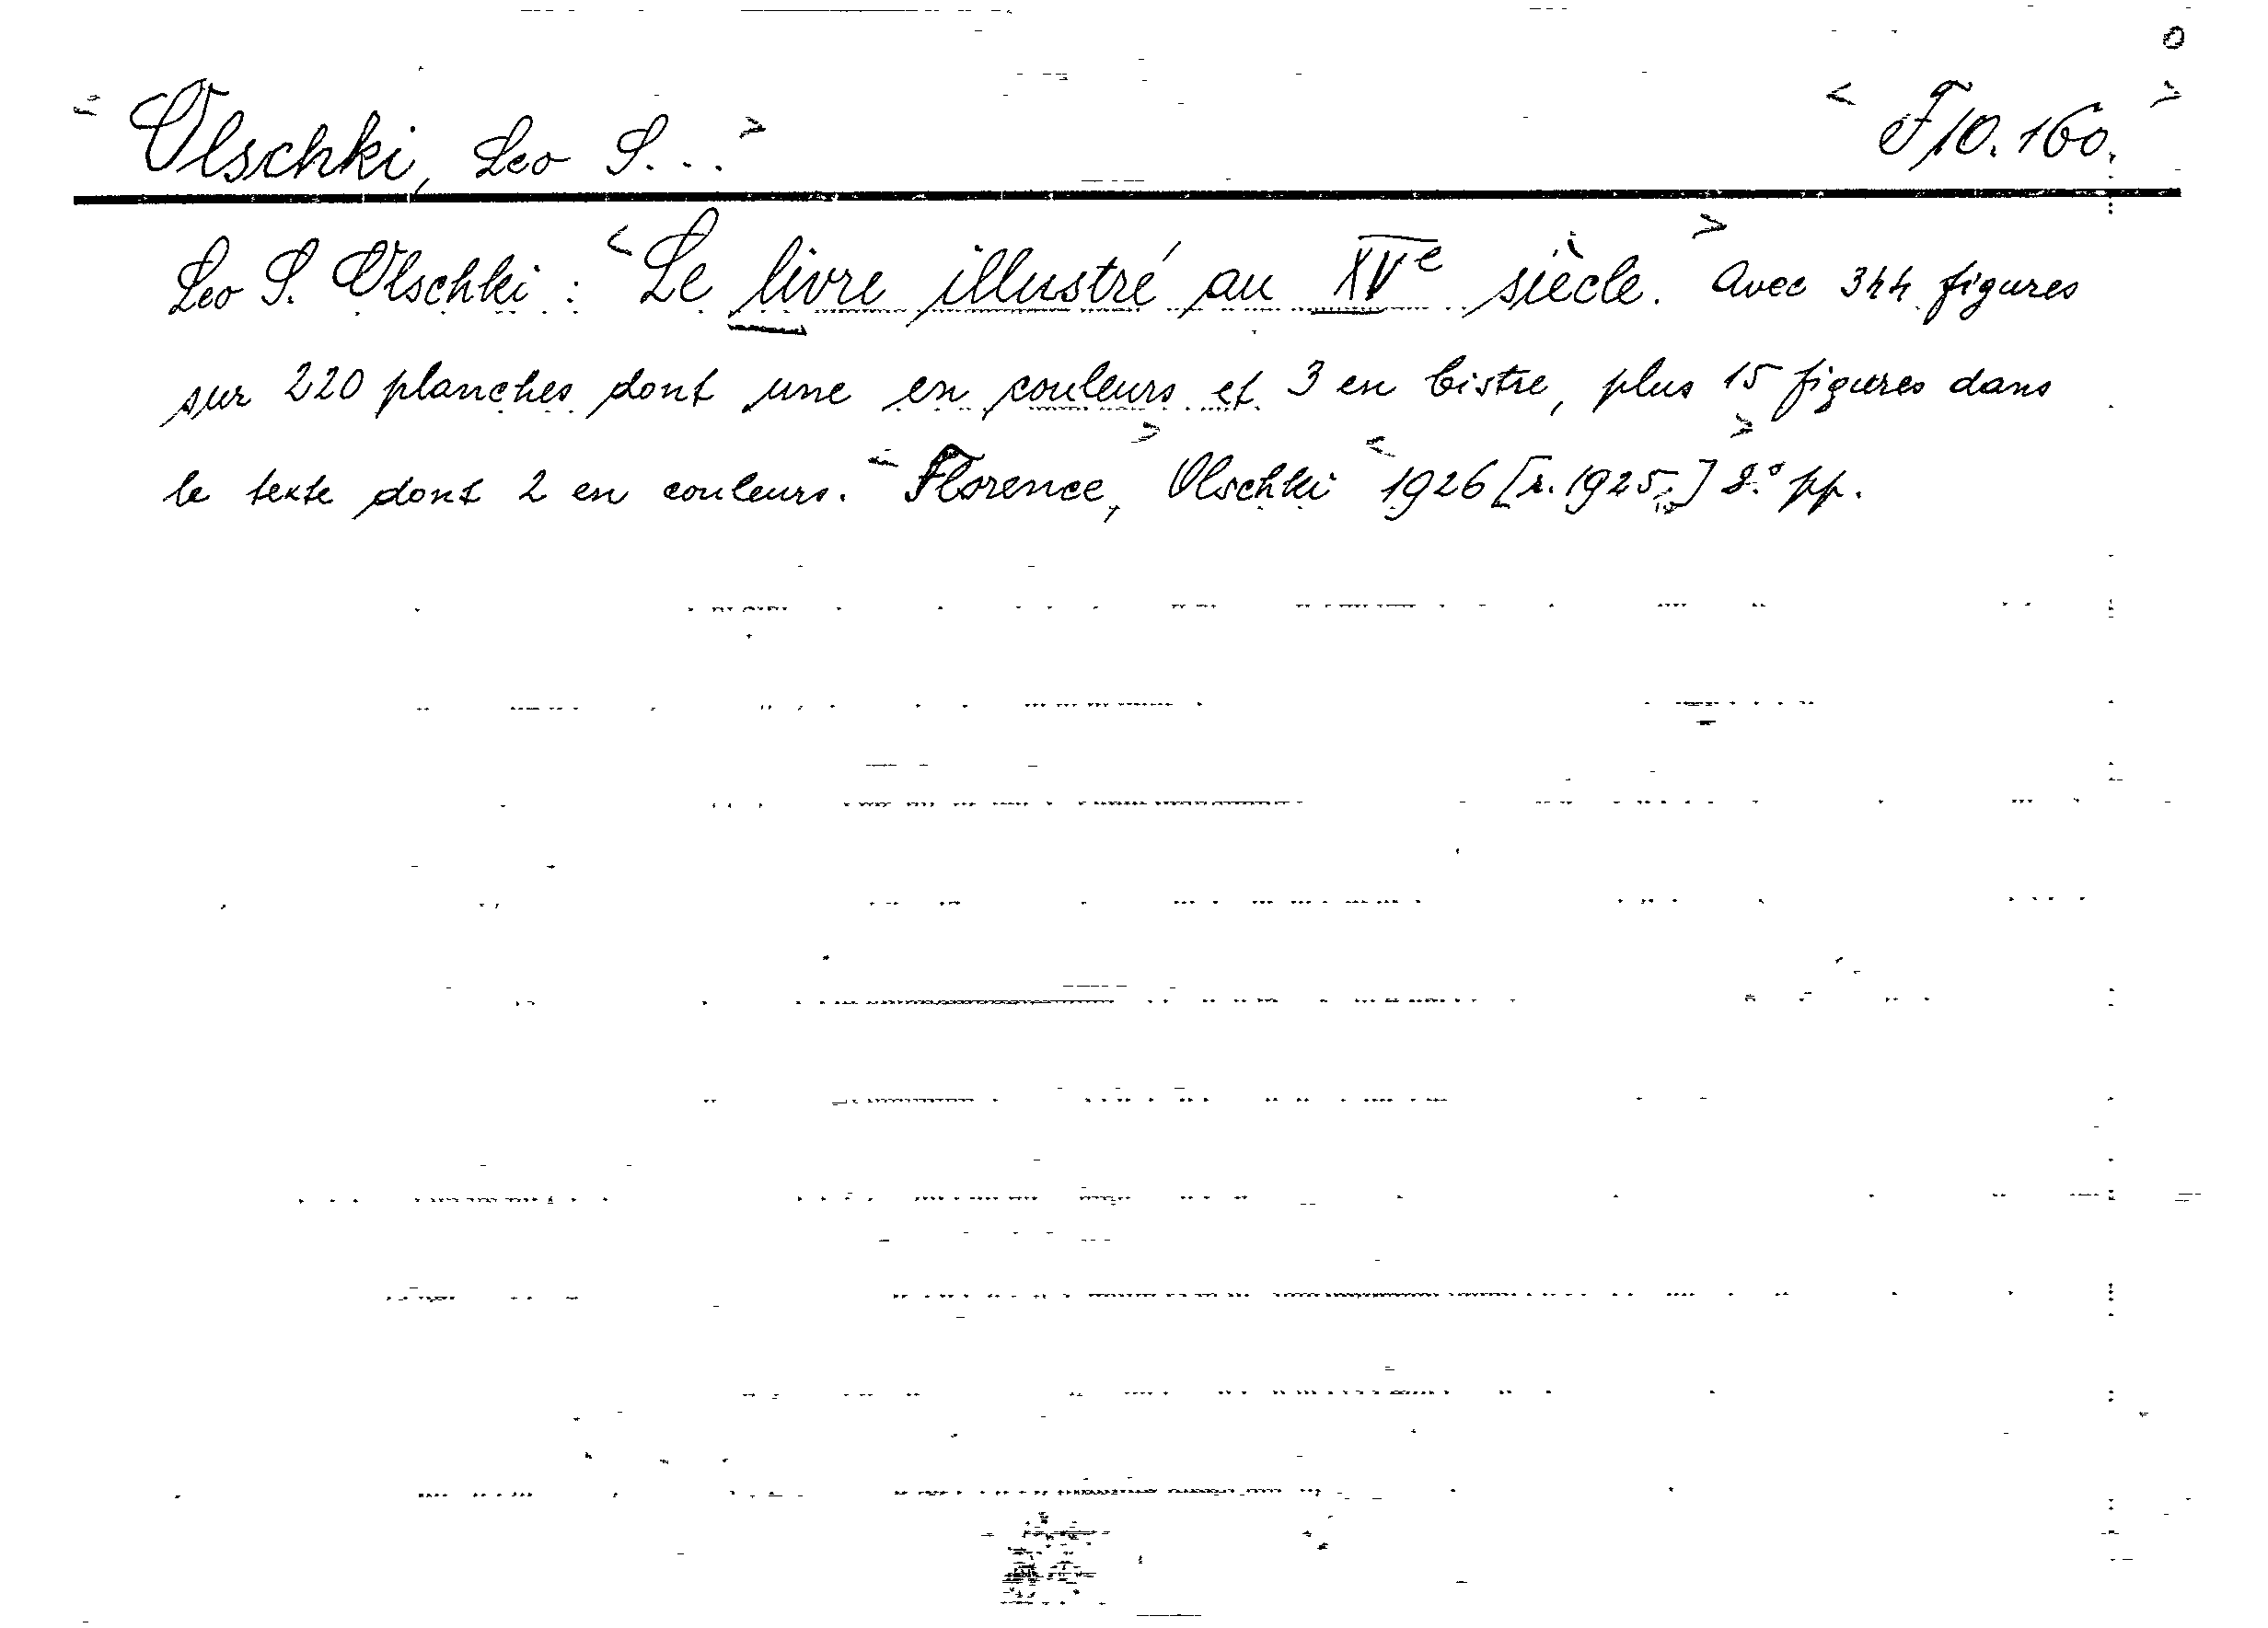 <Olschki, Leo S...> <F10.160.>
Leo S. Olschki: <Le livre illustré au XVe siècle.> Avec 344 figures
sur 220 planches dont une en couleurs et 3 en bistre, plus 15 figures dans
le texte dont 2 en couleurs. <Florence,> Olschki <1926 [r. 1925.]> 8.° pp.